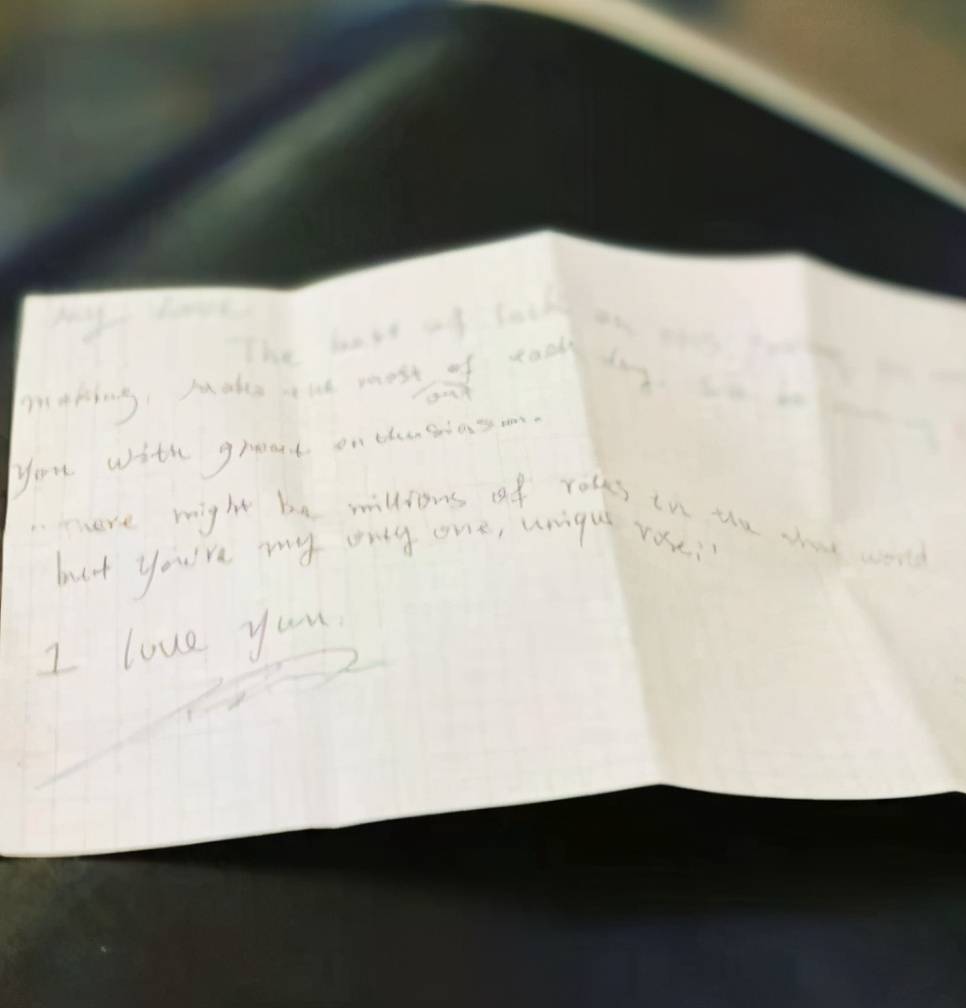 My Love
The best of luck on this
morning, make the most of each day.
out
you with great enthusiasm.
"There might be millions of roses in the world
but you're my only one, unique rose;"
I love you.